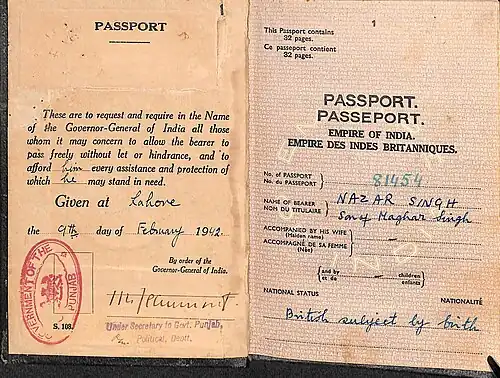 PASSPORT
These are to request and require in the Name
of the Governor-General of India all those
whom it may concern to allow the bearer to
pass freely without let or hindrance, and to
afford him every assistance and protection of
which he may stand in need.
Given at Lahore
the 9th day of February 1942.
By order of the
Governor-General of India.
GOVERNMENT OF THE PUNJAB
S. 108.
Under Secretary to Govt. Punjab,
Political, Deptt.
1
This Passport contains
32 pages.
Ce passeport contient
32 pages.
PASSPORT.
PASSEPORT.
EMPIRE OF INDIA.
EMPIRE DES INDES BRITANNIQUES.
No. of PASSPORT
No. du PASSEPORT
81454
NAME OF BEARER
NOM DU TITULAIRE
NAZAR SINGH
Son of Maghar Singh
ACCOMPANIED BY HIS WIFE
(Maiden name)
ACCOMPAGNÉ DE SA FEMME
(Née)
–
and by
et de
– children
enfants
NATIONAL STATUS NATIONALITÉ
British subject by birth